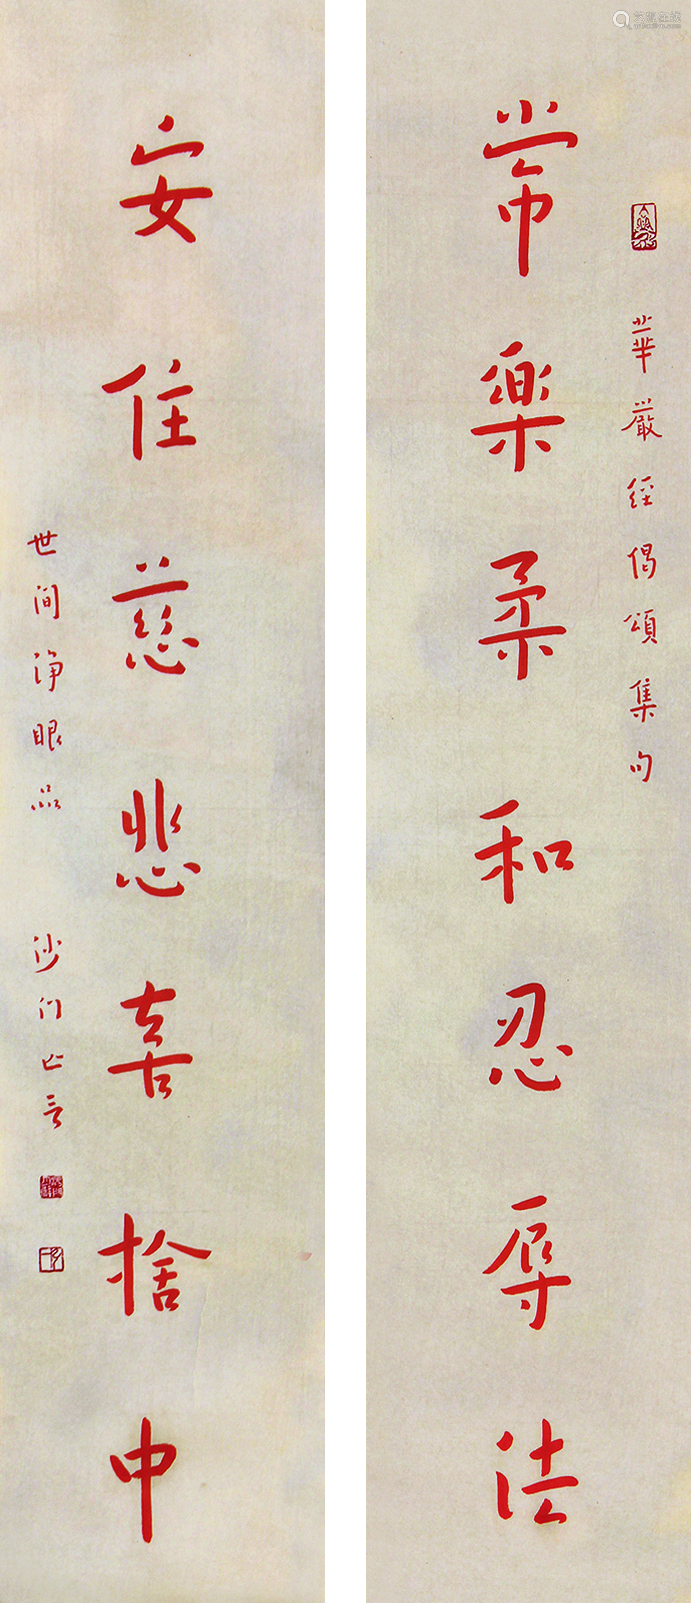 華嚴經偈頌集句
常樂柔和忍辱法
安住慈悲喜捨中
世间淨眼品
沙门亡言